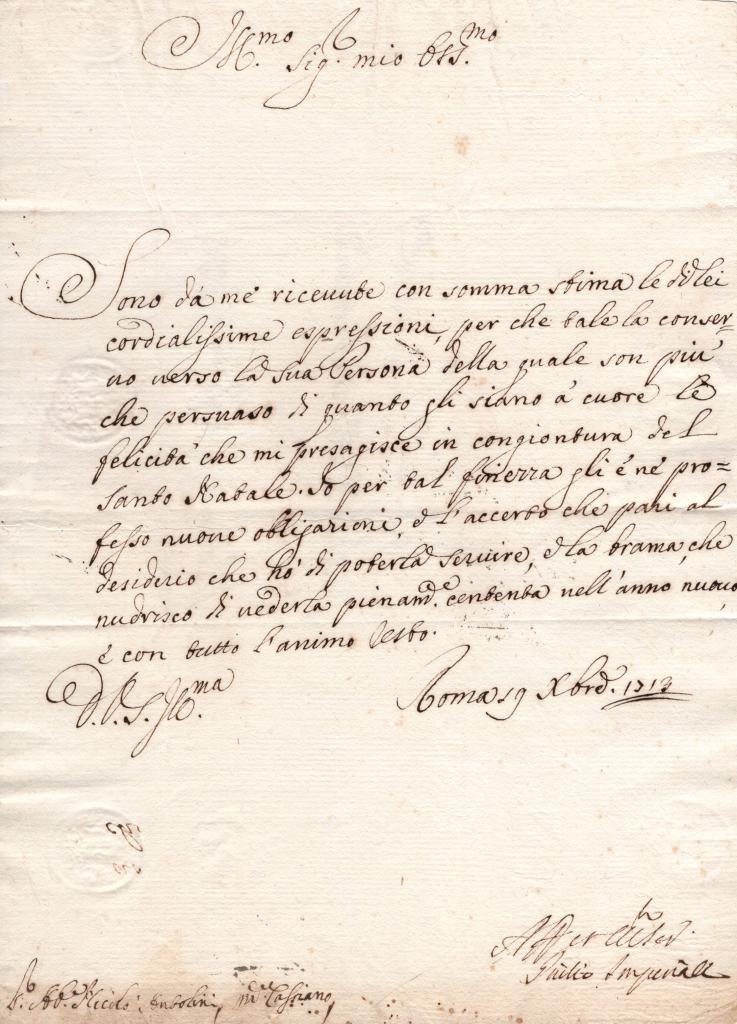 Ill.mo Sig.r mio oss.mo
Sono da me riceuute con somma stima le di lei
cordialissime espressioni, per che tale la conser=
uo uerso la sua Persona della quale son più
che persuaso di quanto gli siano à cuore le
felicità che mi presagisce in congiontura del
Santo Natale. Io per tal finezza gli è né pro=
fesso nuoue obligazioni, e l'accerto che pari al
desiderio che hó di poterla seruire, e la brama, che
nudrisco di uederla pienam.te contenta nell'anno nuouo,
e con tutto l'animo resto.
D. V. S. Ill.ma
Roma 19 Xbre. 1713
Aff
Giulio Imperiale
Ab.e Nicolò Antolini, Cassiano